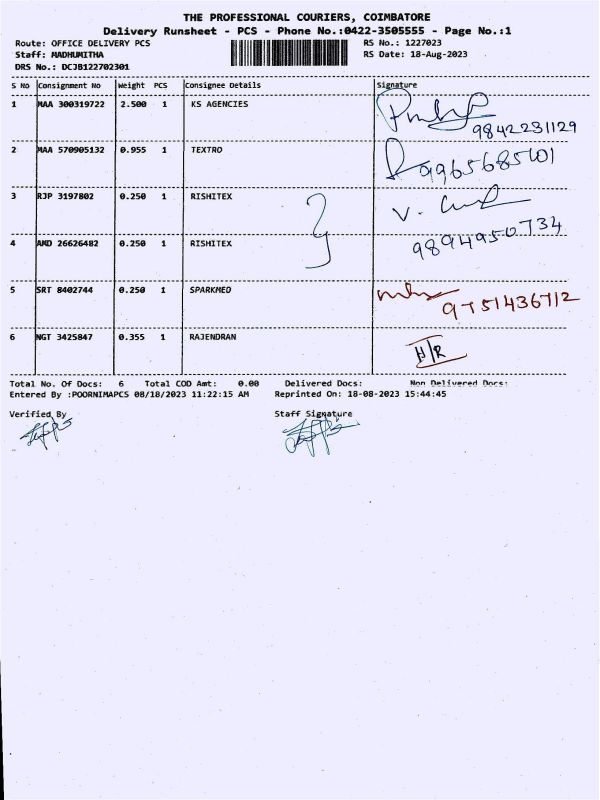 THE PROFESSIONAL COURIERS, COIMBATORE
Delivery Runsheet - PCS - Phone No.:0422-3505555 - Page No.:1
Route: OFFICE DELIVERY PCS RS No.: 1227023
Staff: MADHUMITHA RS Date: 18-Aug-2023
DRS No.: DCJB122702301
S No Consignment No Weight PCS Consignee Details Signature
1 MAA 300319722 2.500 1 KS AGENCIES
9842231129
2 MAA 570905132 0.955 1 TEXTRO
9965685101
3 RJP 3197802 0.250 1 RISHITEX
9894950734
4 AMD 26626482 0.250 1 RISHITEX
5 SRT 8402744 0.250 1 SPARKMED
9751436712
6 NGT 3425847 0.355 1 RAJENDRAN
H/R
Total No. Of Docs: 6 Total COD Amt: 0.00 Delivered Docs: Non Delivered Docs:
Entered By :POORNIMAPCS 08/18/2023 11:22:15 AM Reprinted On: 18-08-2023 15:44:45
Verified By Staff Signature